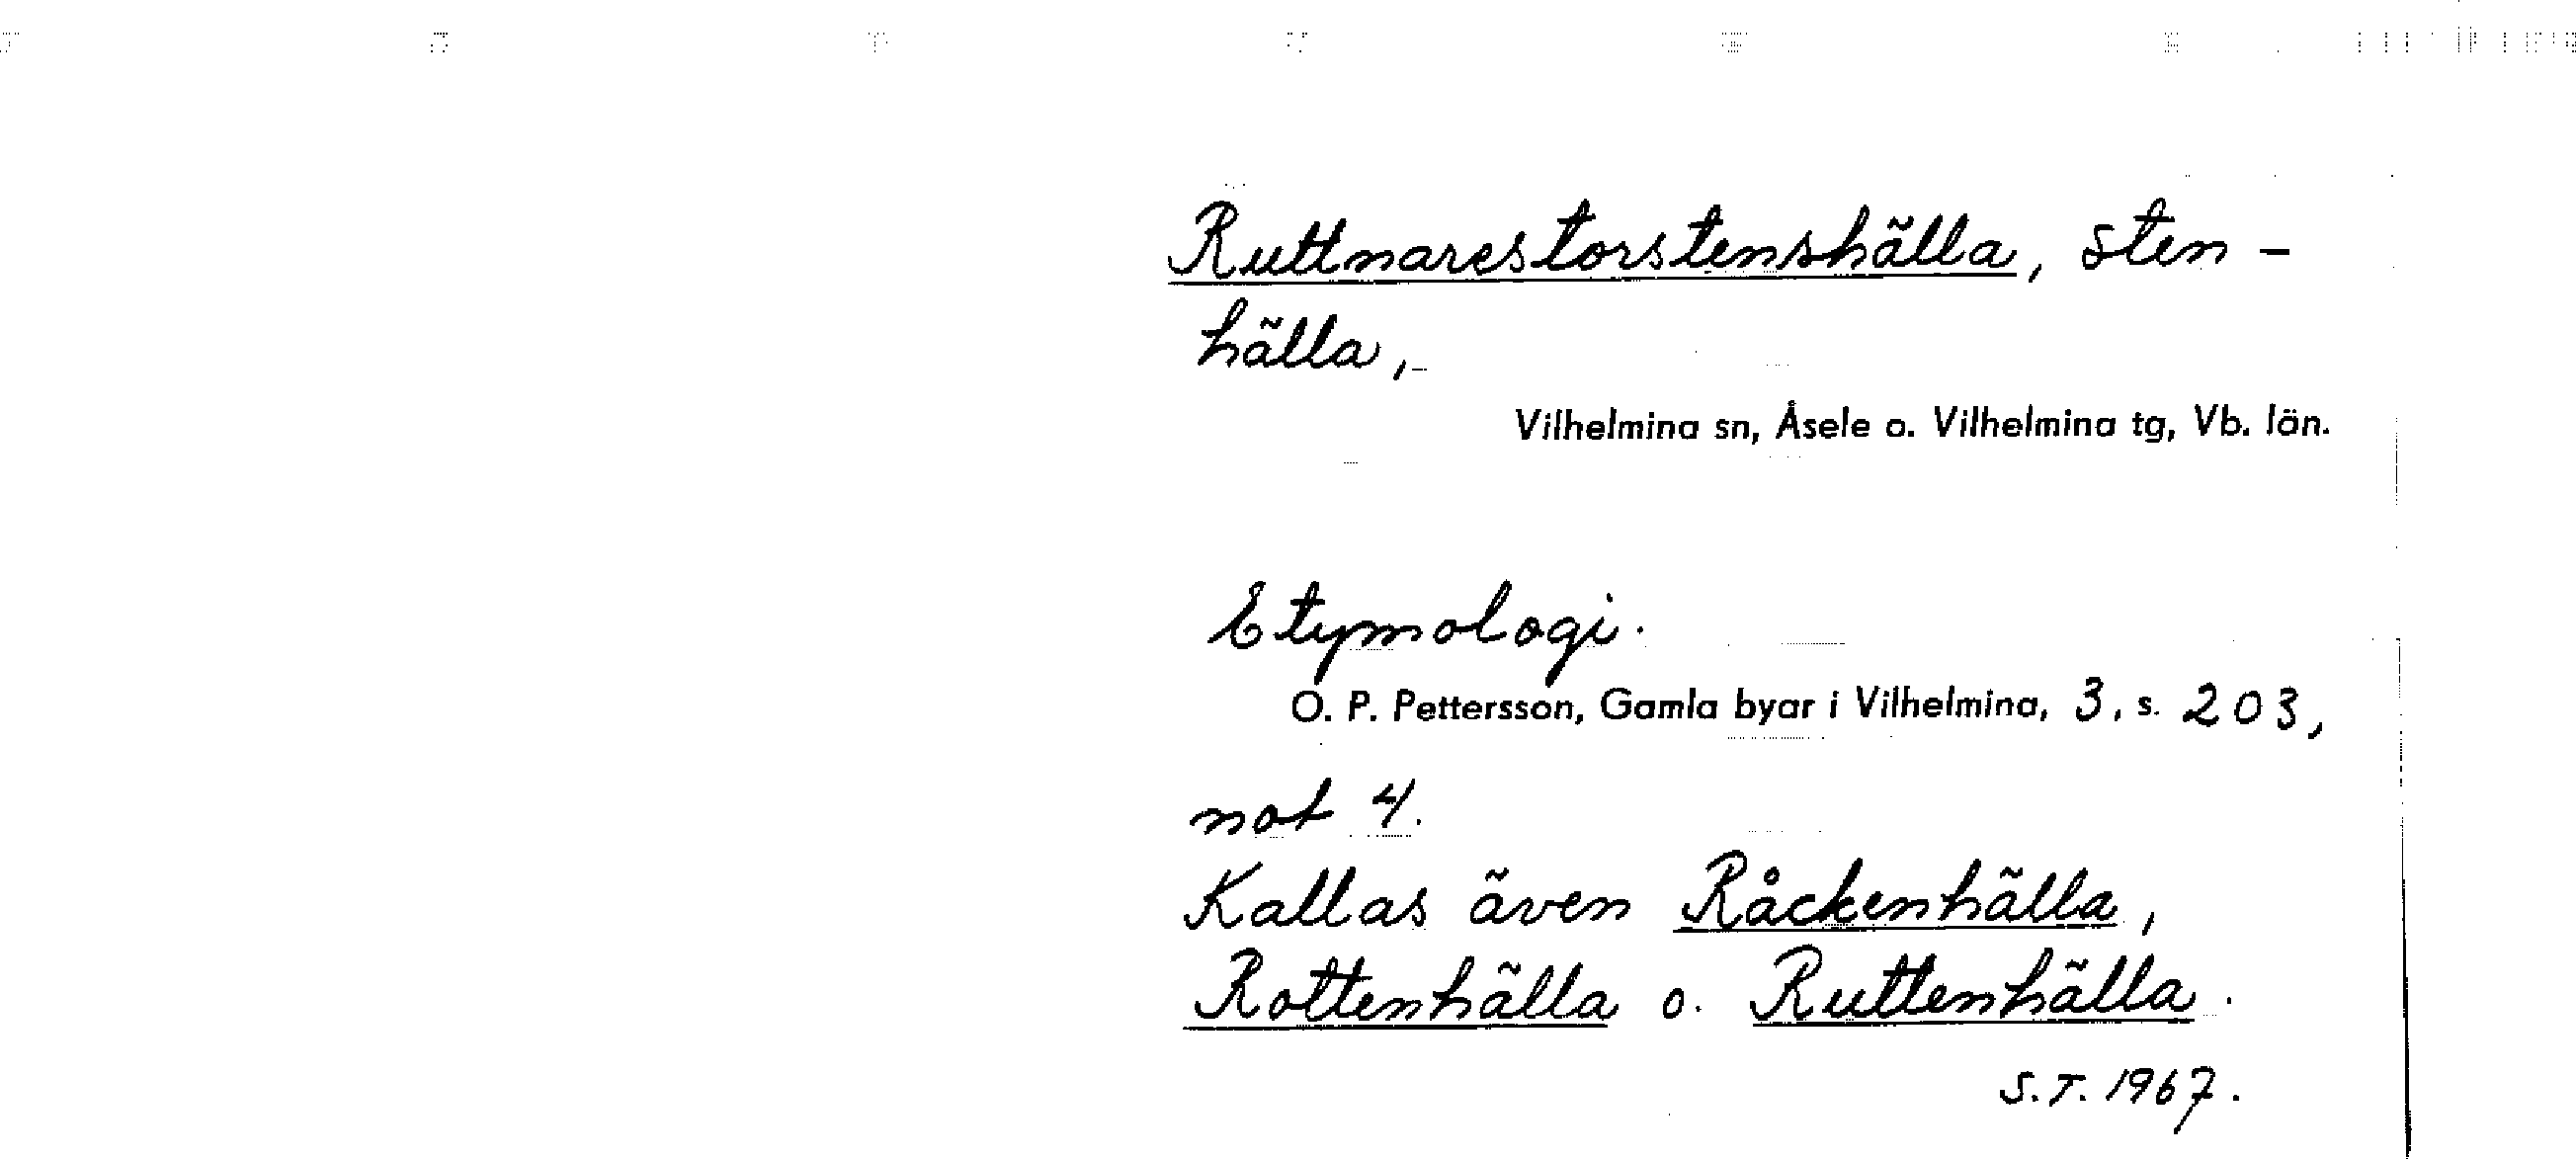 Ruttnarestorstenshälla, sten-
hälla,
Vilhelmina sn, Åsele o. Vilhelmina tg, Vb. län.
Etymologi.
O. P. Pettersson, Gamla byar i Vilhelmina, 3, s. 203,
not 4.
Kallas även Råckenhälla,
Rottenhälla o. Ruttenhälla.
S.T. 1967.